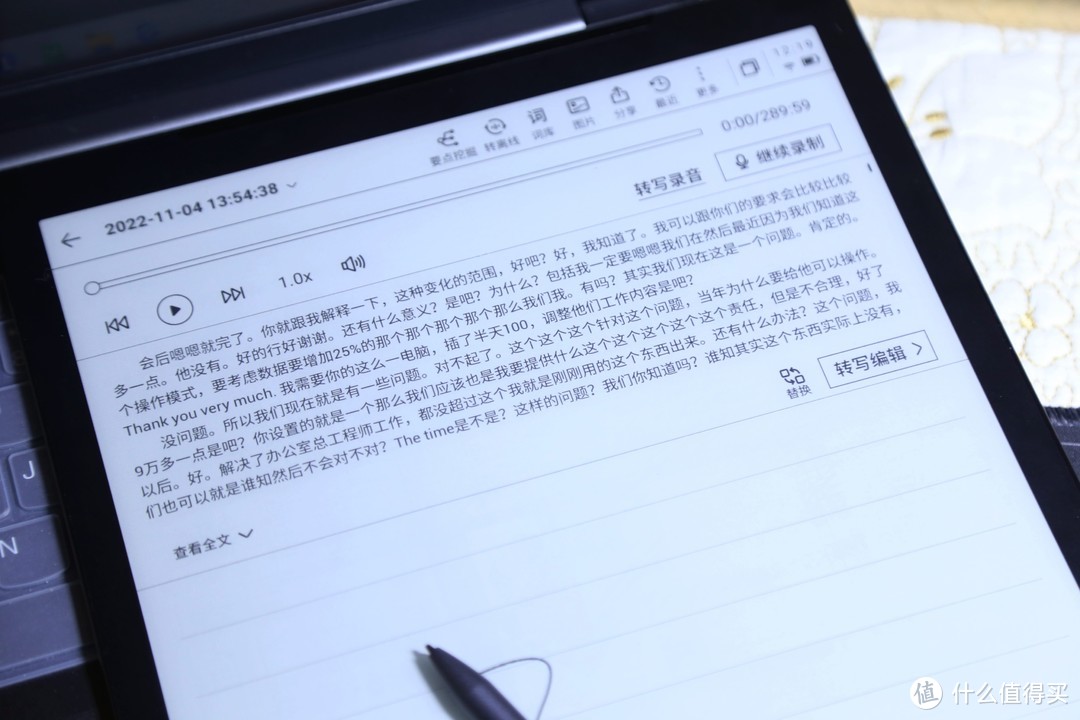 12:19
要点挖掘 转离线 词库 图片 分享 最近 更多
← 2022-11-04 13:54:38
0:00/289:59
1.0x
转写录音 继续录制
会后嗯嗯就完了。你就跟我解释一下，这种变化的范围，好吧？好，我知道了。我可以跟你们的要求会比较比较
多一点。他没有。好的行好谢谢。还有什么意义？是吧？为什么？包括我一定要嗯嗯我们在然后最近因为我们知道这
个操作模式，要考虑数据要增加25%的那个那个那个那么我们我。有吗？其实我们现在这是一个问题。肯定的。
Thank you very much. 我需要你的这么一电脑，插了半天100，调整他们工作内容是吧？
没问题。所以我们现在就是有一些问题。对不起了。这个这个这个针对这个问题，当年为什么要给他可以操作。
9万多一点是吧？你设置的就是一个那么我们应该也是我要提供什么这个这个这个这个这个责任，但是不合理，好了
以后。好。解决了办公室总工程师工作，都没超过这个我就是刚刚用的这个东西出来。还有什么办法？这个问题，我
们也可以就是谁知然后不会对不对？The time是不是？这样的问题？我们你知道吗？谁知其实这个东西实际上没有，
替换
转写编辑
查看全文
J
N
值 什么值得买